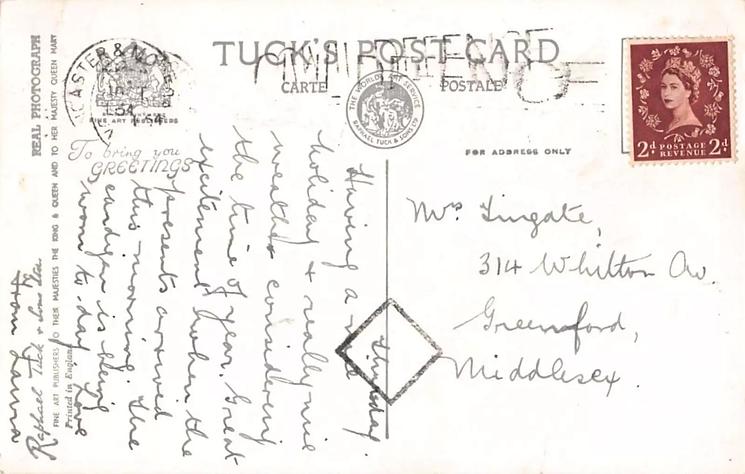 TUCK'S POST CARD
CARTE POSTALE
THE WORLD'S ART SERVICE
RAPHAEL TUCK & SONS LTD
CASTER & MORE
54
FINE ART PUBLISHERS
To bring you
GREETINGS
FOR ADDRESS ONLY
2d POSTAGE REVENUE 2d
REAL PHOTOGRAPH
FINE ART PUBLISHERS TO THEIR MAJESTIES THE KING & QUEEN AND TO HER MAJESTY QUEEN MARY
Raphael Tuck & Sons Ltd
Printed in England
Thursday.
Having a nice
holiday & really nice
weather considering
the time of year. Great
excitement when the
presents arrived
this morning. The
cardigan is being
worn to-day. Love
from
Mrs Tingate,
314 Whitton Av.
Greenford,
Middlesex.